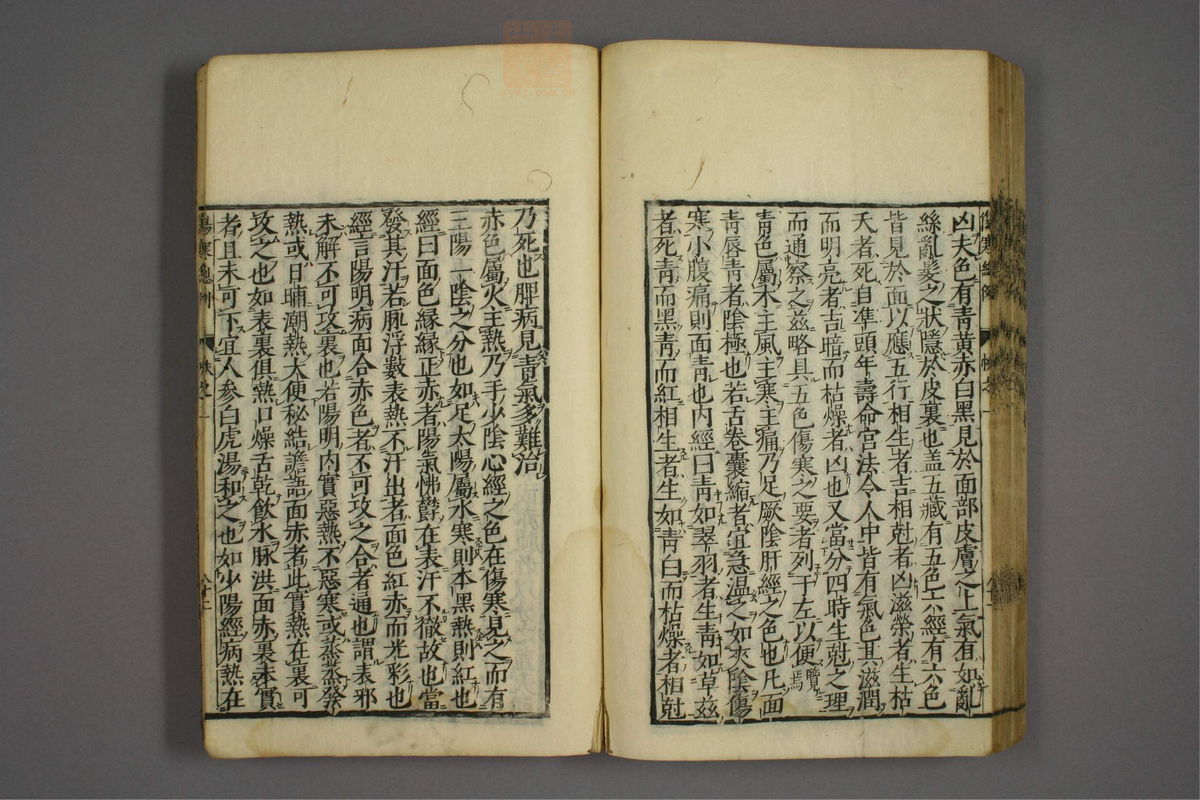 凶夫色有青黃赤白黑見於面部皮膚之上氣有如亂
絲亂髮之狀隱於皮裏也盖五藏有五色六經有六色
皆見於面以應五行相生者吉相尅者凶滋榮者生枯
夭者死自準頭年壽命宮法令人中皆有氣色其滋潤
而明亮者吉暗而枯燥者凶也又當分四時生尅之理
而通察之兹略具五色傷寒之要者列于左以便覽焉
青色屬木主風主寒主痛乃足厥陰肝經之色也凡面
青唇青者陰極也若舌卷囊縮者宜急温之如夾陰傷
寒小腹痛則面青也内經曰青如翠羽者生青如草兹
者死青而黑青而紅相生者生如青白而枯燥者相尅
乃死也脾病見青氣多難治
赤色屬火主熱乃手少陰心經之色在傷寒見之而有
三陽一陰之分也如足太陽屬水寒則本黑熱則紅也
經曰面色緣緣正赤者陽氣怫鬱在表汗不徹故也當
發其汗若脉浮數表熱不汗出者面色紅赤而光彩也
經言陽明病面合赤色者不可攻之合者通也謂表邪
未解不可攻裏也若陽明内實惡熱不惡寒或蒸蒸發
熱或日晡潮熱大便秘結譫語面赤者此實熱在裏可
攻之也如表裏俱熱口燥舌乾飲水脉洪面赤裏未實
者且未可下宜人参白虎湯和之也如少陽經病熱在
傷寒總例